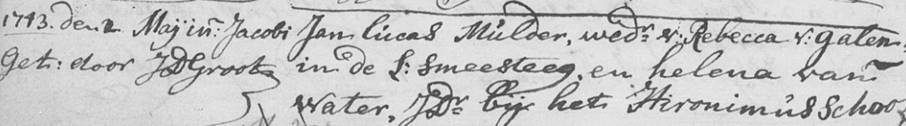 1773. den 2 Maij in: Jacobi Jan lucas Mulder, wedr. v: Rebecca v: gaten,
Get: door JDGroot in de L: Smeesteeg, en helena van
Water, JDr. bij het Hironimus Schoo